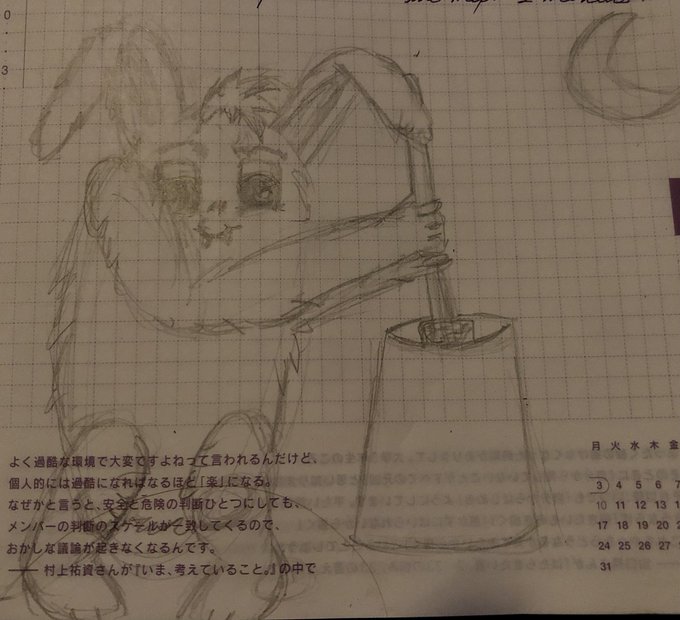 0
3
よく過酷な環境で大変ですよねって言われるんだけど、
個人的には過酷になればなるほど「楽」になる。
なぜかと言うと、安全と危険の判断ひとつにしても、
メンバーの判断のスケールが一致してくるので、
おかしな議論が起きなくなるんです。
—— 村上祐資さんが『いま、考えていること。』の中で
月 火 水 木 金
3 4 5 6 7
10 11 12 13
17 18 19 20
24 25 26 27
31